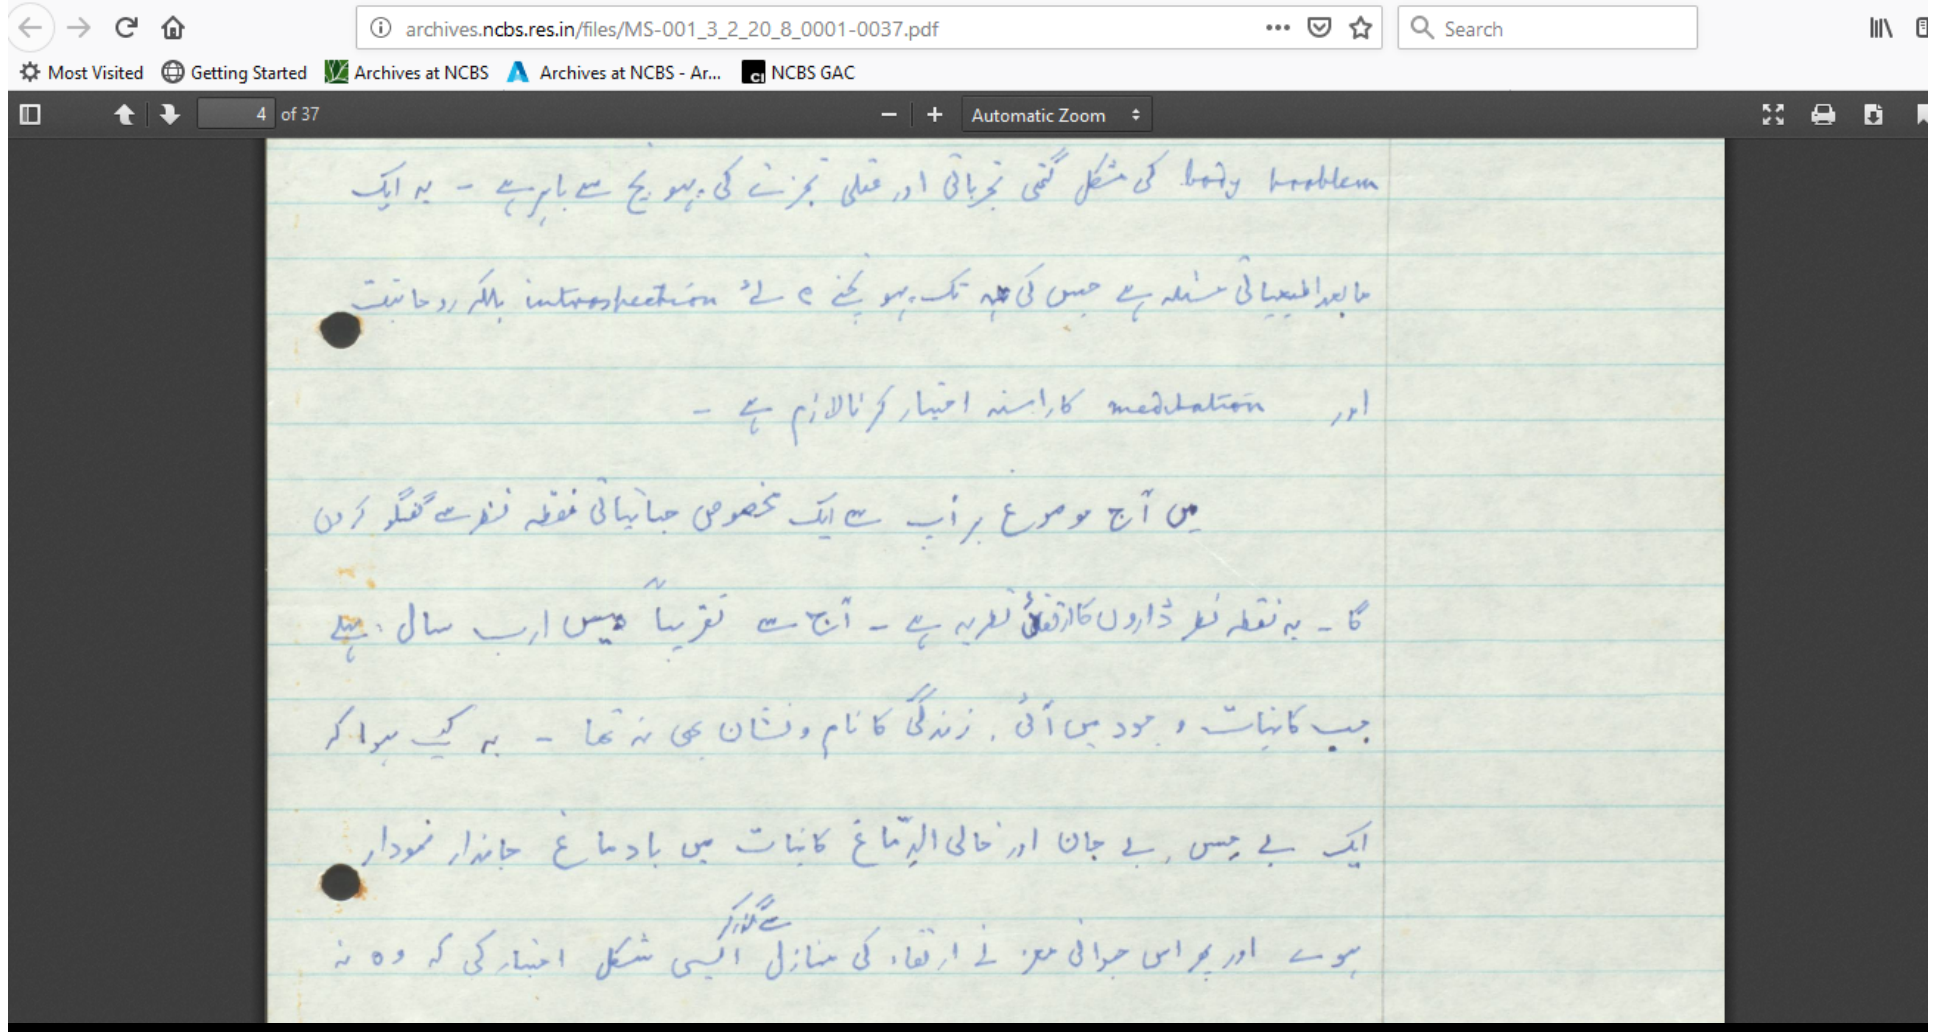 archives.ncbs.res.in/files/MS-001_3_2_20_8_0001-0037.pdf
Search
Most Visited Getting Started Archives at NCBS Archives at NCBS - Ar... NCBS GAC
4 of 37 Automatic Zoom
body problem کی مشکل گتھی تجرباتی اور عقلی تجزیے کی پہونچ سے باہر ہے - یہ ایک
مابعدالطبیعیاتی مسئلہ ہے جس کی تہہ تک پہونچنے کے لئے introspection بلکہ روحانیت
اور meditation کا راستہ اختیار کرنا لازم ہے -
میں آج موضوع پر آپ سے ایک مخصوص حیاتیاتی نقطہ نظر سے گفتگو کروں
گا - یہ نقطہ نظر ڈارون کا ارتقائی نظریہ ہے - آج سے تقریباً بیس ارب سال پہلے
جب کائنات وجود میں آئی، زندگی کا نام و نشان بھی نہ تھا - یہ کیسے ہوا کہ
ایک بے حس، بے جان اور خالی الدّماغ کائنات میں بادماغ جاندار نمودار
ہوے اور پھر اس حیوانی مغز نے ارتقاء کی منازل سے گذر کر ایسی شکل اختیار کی کہ وہ نہ